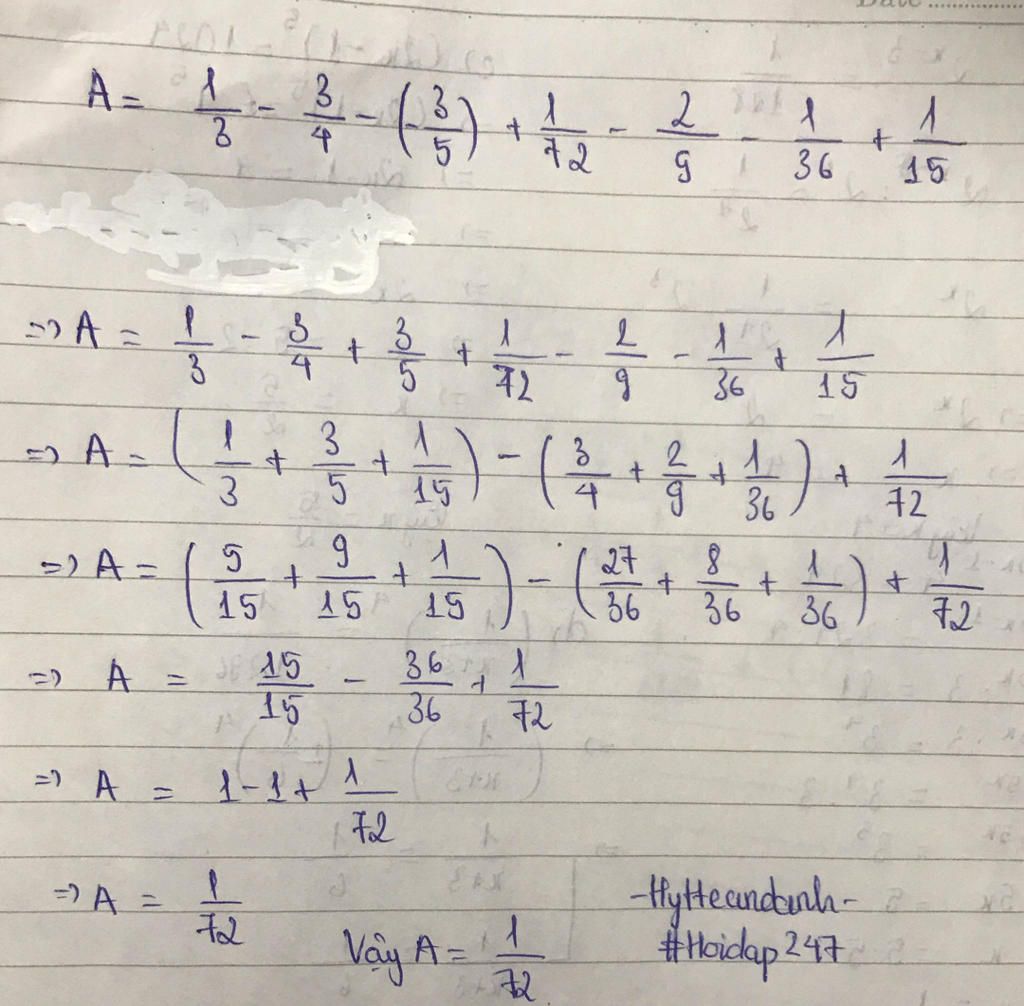 Date ..................
A = 1/3 - 3/4 - (-3/5) + 1/72 - 2/9 - 1/36 + 1/15
=> A = 1/3 - 3/4 + 3/5 + 1/72 - 2/9 - 1/36 + 1/15
=> A = (1/3 + 3/5 + 1/15) - (3/4 + 2/9 + 1/36) + 1/72
=> A = (5/15 + 9/15 + 1/15) - (27/36 + 8/36 + 1/36) + 1/72
=> A = 15/15 - 36/36 + 1/72
=> A = 1 - 1 + 1/72
=> A = 1/72
Vậy A = 1/72
-HyHeandanh-
#Hoidap247